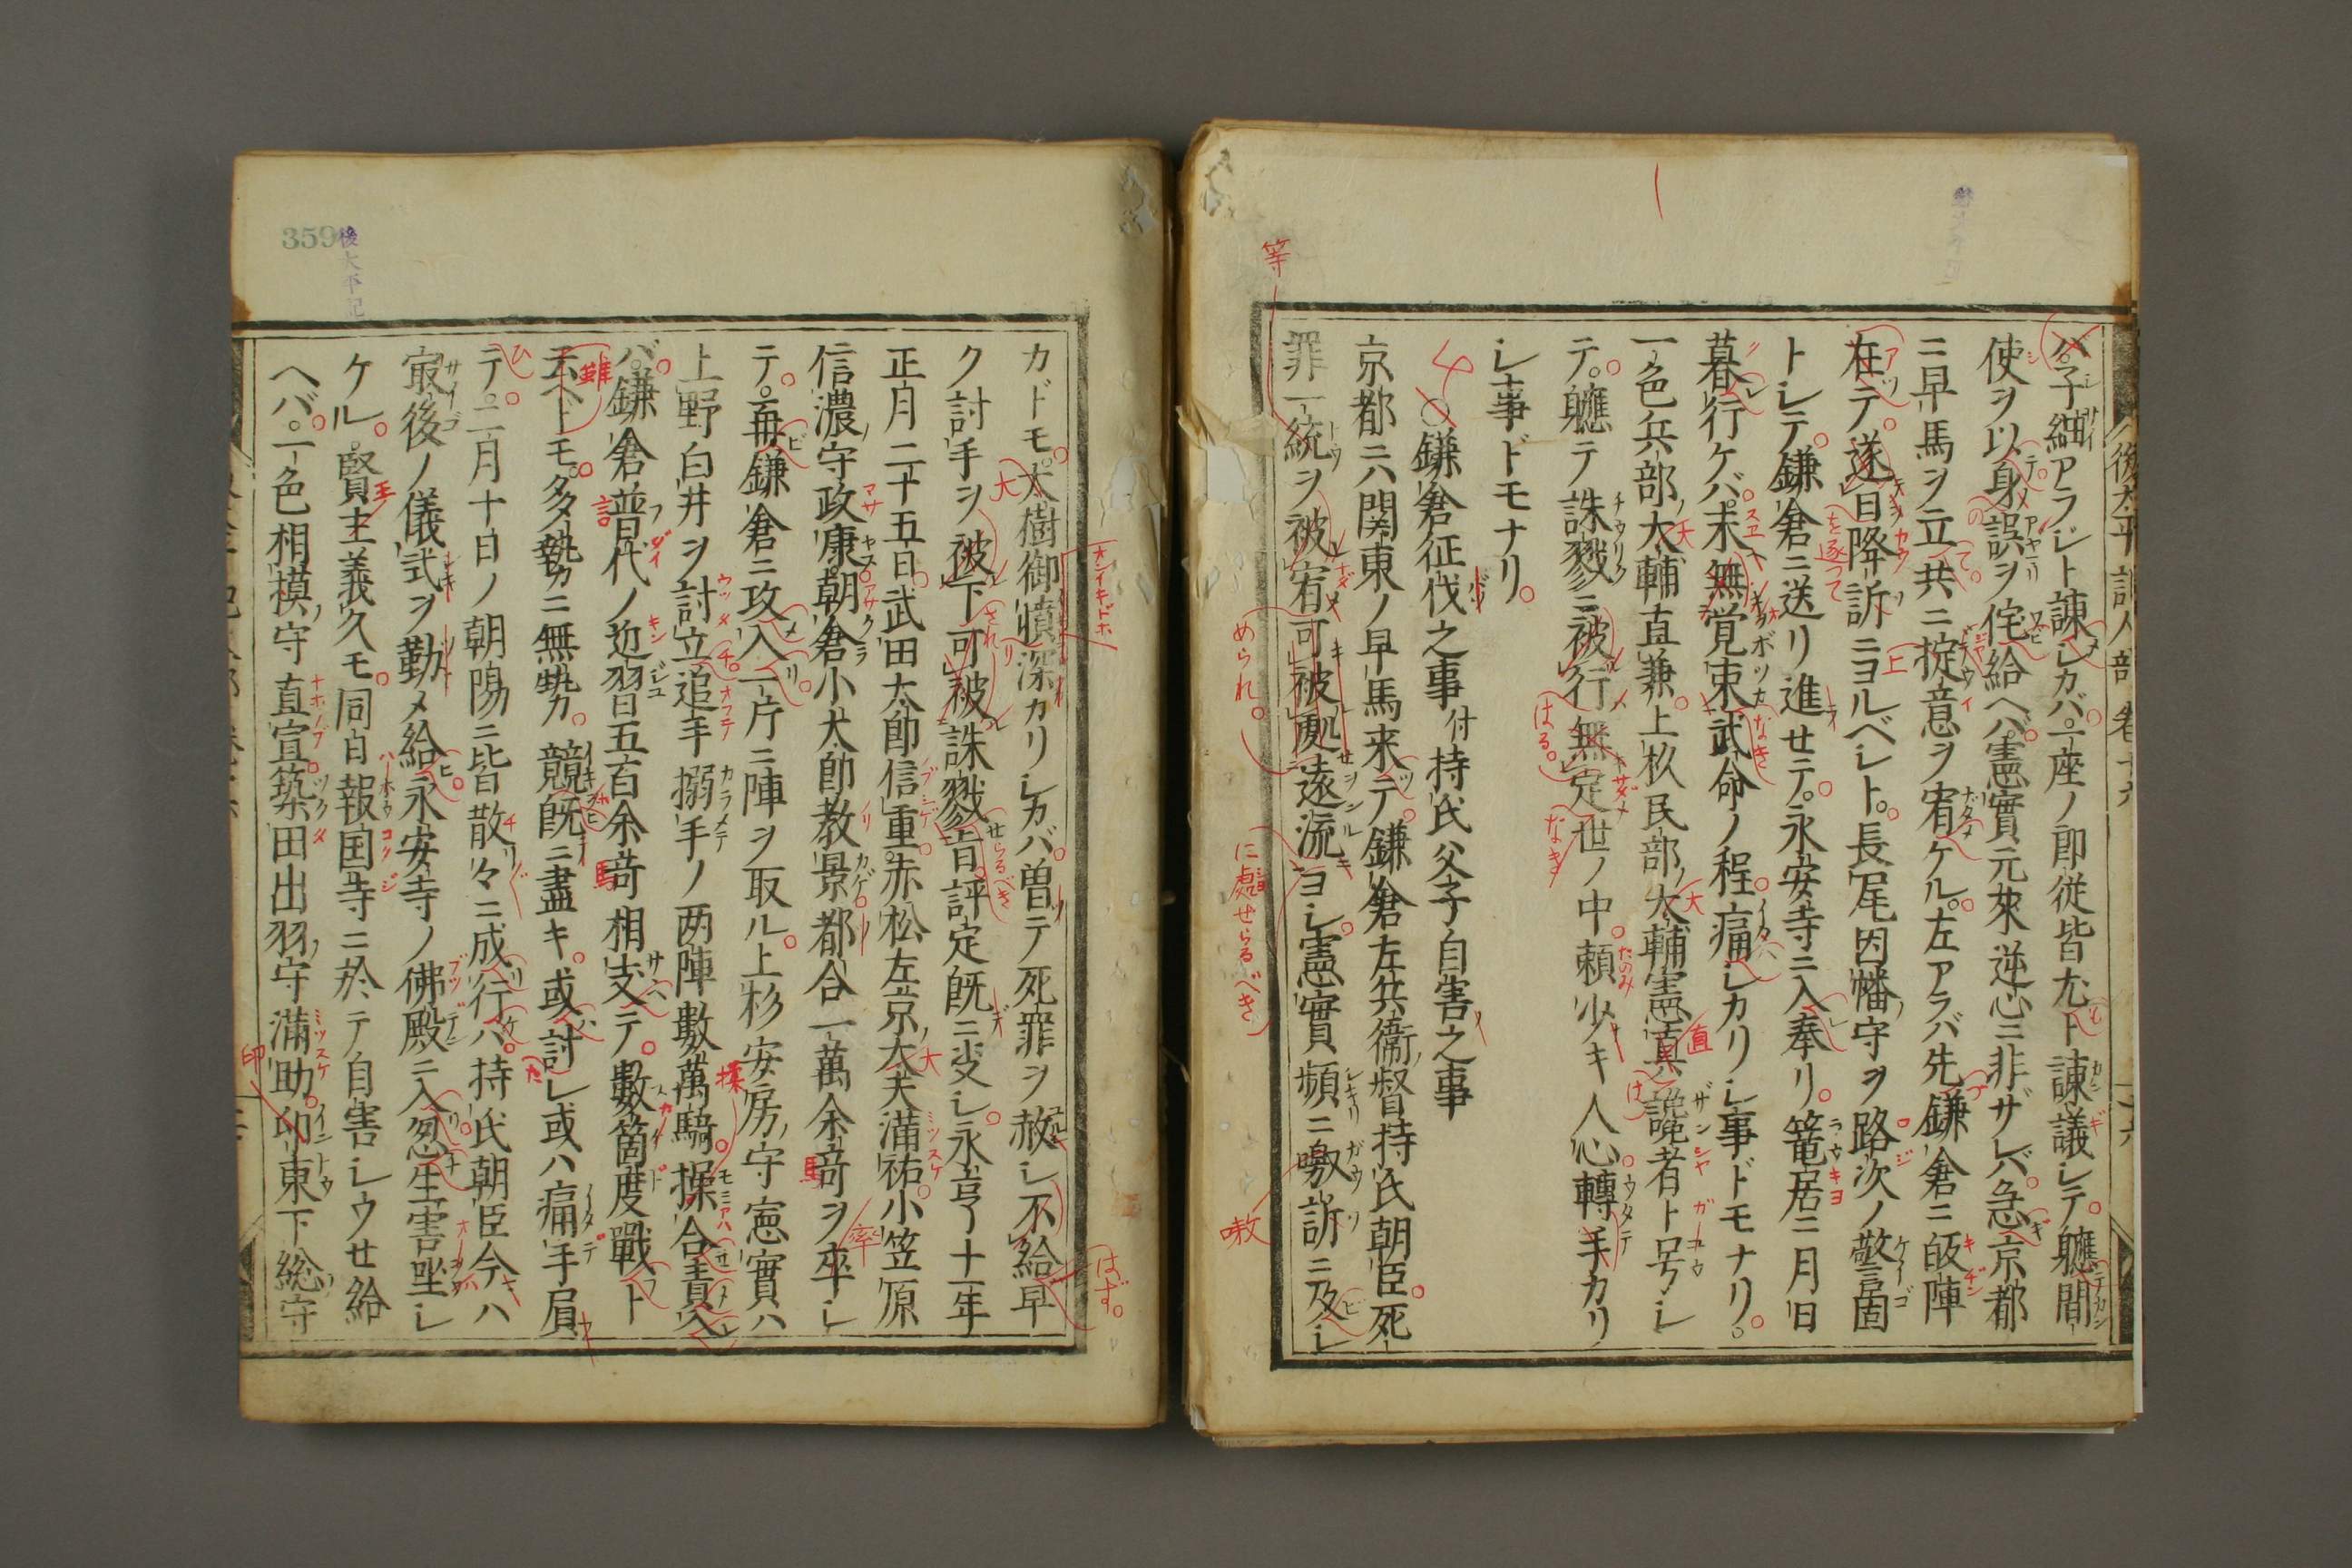 ハ。子細アラジト諫シカバ。一座ノ郎従皆尤ト諫議シテ。軈間
使ヲ以身誤ヲ侘給ヘバ。憲實元来逆心ニ非ザレバ。急京都
ニ早馬ヲ立共ニ掟意ヲ宥ケル。左アラバ先鎌倉ニ皈陣
在テ。逐日降訴ニヨルベシト。長尾因幡守ヲ路次ノ警固
トシテ。鎌倉ニ送リ進セテ。永安寺ニ入奉リ。篭居ニ月日
暮行ケバ。末無覚束武命ノ程痛シカリシ事ドモナリ。
一色兵部大輔直兼。上杦民部大輔憲真讒者ト号シ
テ。軈テ誅戮ニ被行無定世ノ中頼少キ人心轉手カリ
シ事ドモナリ。
○鎌倉征伐之事 付 持氏父子自害之事
京都ニハ関東ノ早馬来テ。鎌倉左兵衞督持氏朝臣死
罪一統ヲ被宥可被處遠流ヨシ。憲實頻ニ嗷訴ニ及シ
カドモ。大樹御憤深カリシカバ曽テ死罪ヲ赦シ不給早
ク討手ヲ被下可被誅戮旨評定既ニ定シ。永享十一年
正月二十五日。武田大郎信重。赤松左京大夫満祐。小笠原
信濃守政康。朝倉小太郎教景都合一萬余竒ヲ卒シ
テ。再鎌倉ニ攻入一片ニ陣ヲ取ル。上杉安房守憲實ハ
上野白井ヲ討立追手搦手ノ両陣數萬騎操合責入
バ。鎌倉普代ノ近習五百余竒相支テ。數箇度戰ト
云ヘドモ。多勢ニ無勢。競既ニ盡キ。或討レ或ハ痛手肩
テ。二月十日ノ朝陽ニ皆散々ニ成行バ。持氏朝臣今ハ
寂後ノ儀式ヲ勤メ給永安寺ノ佛殿ニ入忽生害坐シ
ケル。賢主義久モ。同日報国寺ニ於テ自害シウせ給
ヘバ。一色相摸守直宣。築田出羽守満助。印東下総守
後太平記人部巻十六
359
後太平記
等
められ。
に處せらるべき
嗷
はる。
なき
を逐つて
オンイキドホ
はず。
され
せらるべき
率
馬
難
印
直